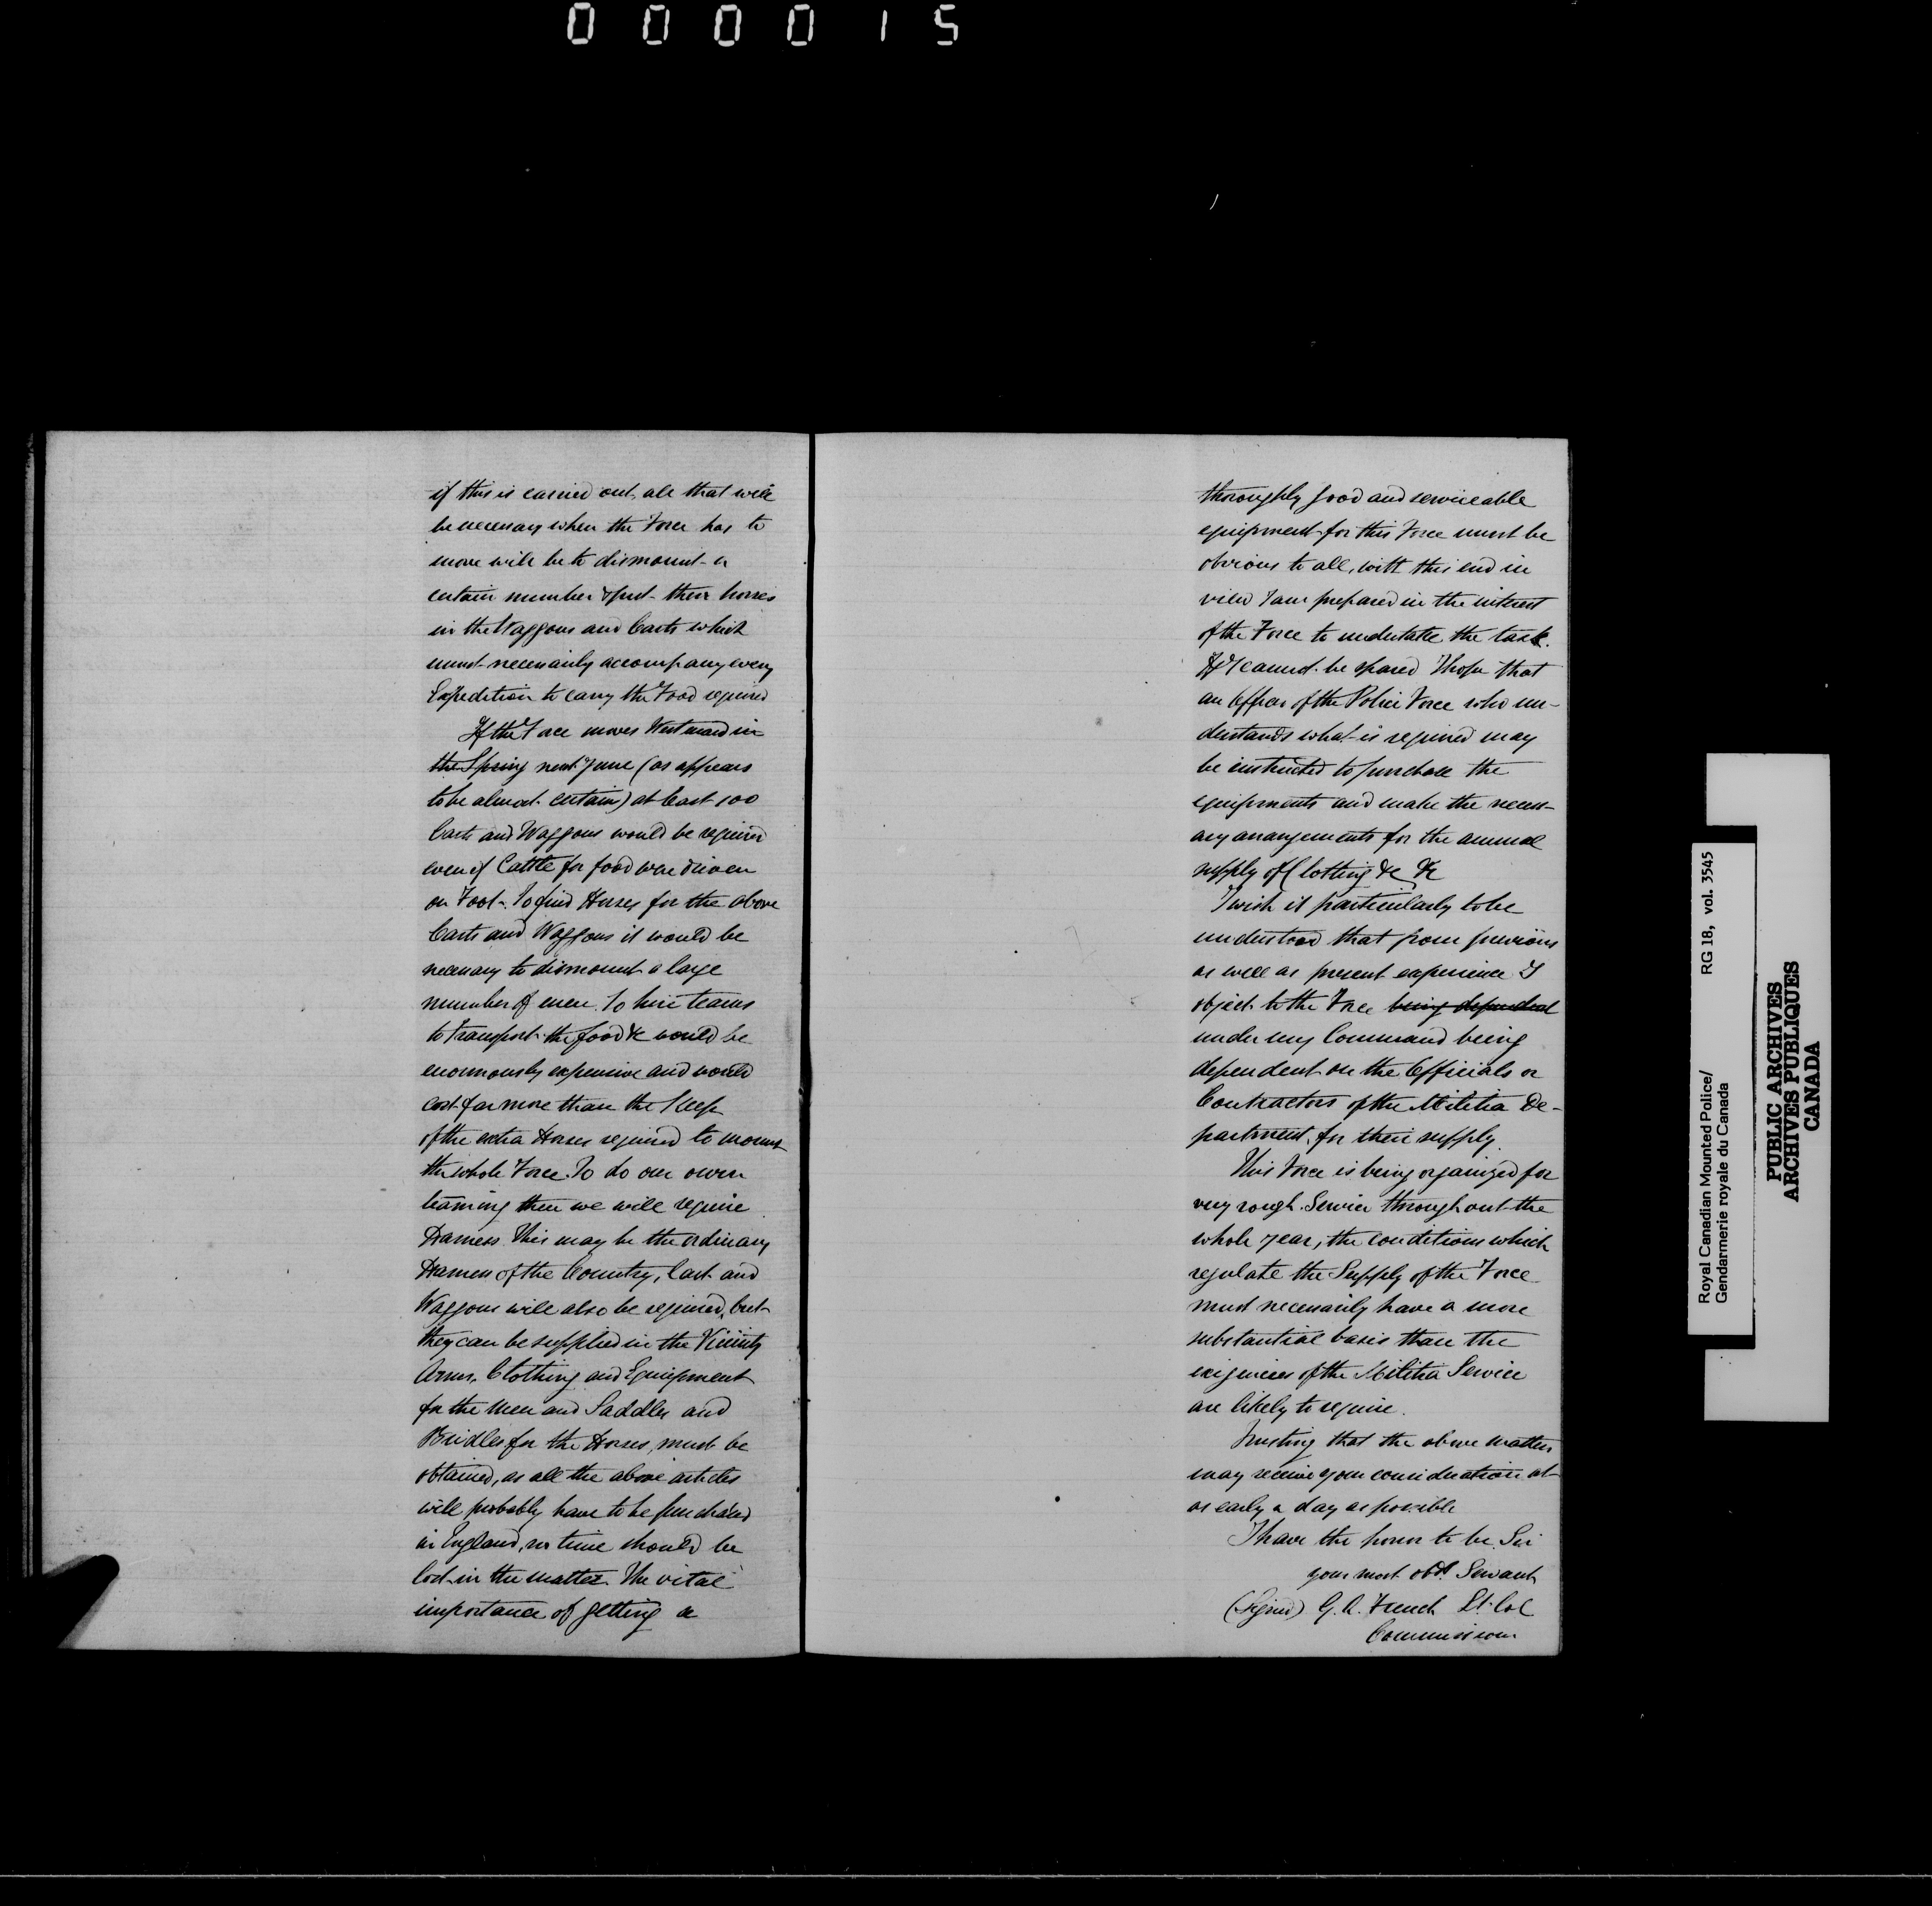 000015
if this is carried out, all that will
be necessary when the Force has to
move will be to dismount a
certain number & put their horses
in the Waggons and Carts which
must necessarily accompany every
Expedition to carry the Food required
If the Force moves Westward in
the Spring next June (as appears
to be almost certain) at least 100
Carts and Waggons would be required
even if Cattle for food were driven
on Foot. To find Horses for the above
Carts and Waggons it would be
necessary to dismount a large
number of men. To hire teams
to transport the food &c would be
enormously expensive and would
cost far more than the Keep
of the extra Horses required to mount
the whole Force. To do our own
teaming then we will require
Harness. This may be the ordinary
Harness of the Country, Cart and
Waggons will also be required, but
they can be supplied in the Vicinity
Arms, Clothing and Equipment
for the Men and Saddles and
Bridles for the Horses, must be
obtained, as all the above articles
will probably have to be purchased
in England, no time should be
lost in the matter. The vital
importance of getting a
thoroughly good and serviceable
equipment for this Force must be
obvious to all, with this end in
view I am prepared in the interest
of the Force to undertake the task.
If I cannot be spared I hope that
an Officer of the Police Force who un-
derstands what is required may
be instructed to purchase the
equipments and make the necess-
ary arrangements for the annual
supply of Clothing &c &c
I wish it particularly to be
understood that from previous
as well as present experience I
object to the Force being dependent
under my Command being
dependent on the Officials or
Contractors of the Militia De-
partment, for their supply.
This Force is being organized for
very rough Service throughout the
whole year, the conditions which
regulate the Supply of the Force
must necessarily have a more
substantial basis than the
exigencies of the Militia Service
are likely to require.
Trusting that the above matters
may receive your consideration at
as early a day as possible
I have the honor to be, Sir
your most obdt Servant
(Signed) G. A. French Lt. Col
Commissioner
Royal Canadian Mounted Police/
Gendarmerie royale du Canada
RG 18, vol. 3545
PUBLIC ARCHIVES
ARCHIVES PUBLIQUES
CANADA